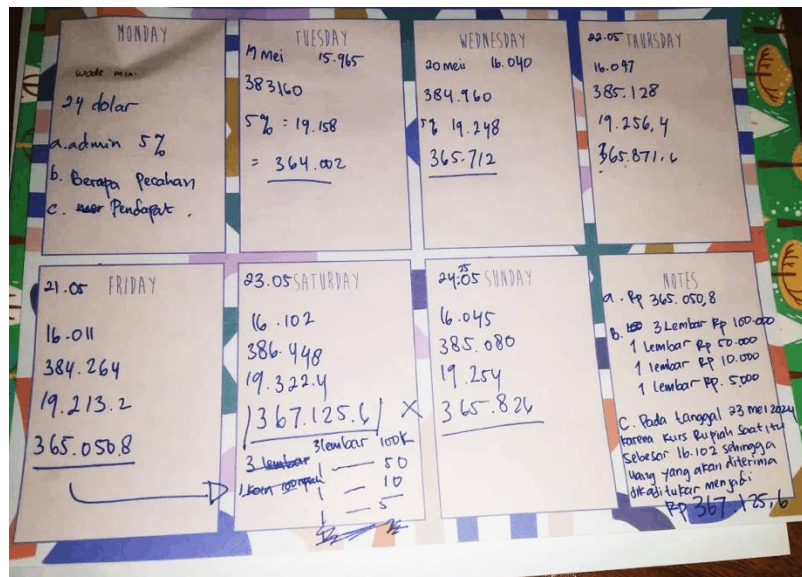 MONDAY
24 dolar
a. admin 5%
b. Berapa Pecahan
c. Pendapat.
TUESDAY
Mei 15.965
383160
5% = 19.158
= 364.002
WEDNESDAY
20 mei 16.040
384.960
5% 19.248
365.712
22.05 THURSDAY
16.047
385.128
19.256,4
365.871.6
21.05 FRIDAY
16.011
384.264
19.213.2
365.050.8
23.05 SATURDAY
16.102
386.448
19.322.4
367.125.6 X
3 lembar 3lembar 100K
1 koin 1 — 50
1 — 10
1 — 5
24.05 SUNDAY
16.045
385.080
19.254
365.826
NOTES
a. Rp 365.050,8
b. 3 Lembar Rp 100.000
1 Lembar Rp 50.000
1 lembar Rp 10.000
1 Lembar Rp. 5.000
C. Pada tanggal 23 mei 2024
karena kurs Rupiah saat itu
sebesar 16.102 sehingga
uang yang akan diterima
jika ditukar menjadi
Rp 367.125,6